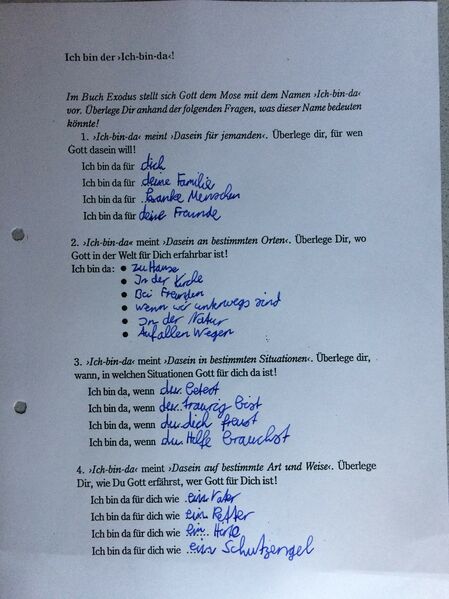 Ich bin der ›Ich-bin-da‹!
Im Buch Exodus stellt sich Gott dem Mose mit dem Namen ›Ich-bin-da‹
vor. Überlege Dir anhand der folgenden Fragen, was dieser Name bedeuten
könnte!
1. ›Ich-bin-da‹ meint ›Dasein für jemanden‹. Überlege dir, für wen
Gott dasein will!
Ich bin da für dich
Ich bin da für deine Familie
Ich bin da für kranke Menschen
Ich bin da für deine Freunde
2. ›Ich-bin-da‹ meint ›Dasein an bestimmten Orten‹. Überlege Dir, wo
Gott in der Welt für Dich erfahrbar ist!
Ich bin da: • zu Hause
• In der Kirche
• Bei Freunden
• wenn wir unterwegs sind
• In der Natur
• Auf allen Wegen
3. ›Ich-bin-da‹ meint ›Dasein in bestimmten Situationen‹. Überlege dir,
wann, in welchen Situationen Gott für dich da ist!
Ich bin da, wenn du betest
Ich bin da, wenn du traurig bist
Ich bin da, wenn du dich freust
Ich bin da, wenn du Hilfe brauchst
4. ›Ich-bin-da‹ meint ›Dasein auf bestimmte Art und Weise‹. Überlege
Dir, wie Du Gott erfährst, wer Gott für Dich ist!
Ich bin da für dich wie ein Vater
Ich bin da für dich wie ein Retter
Ich bin da für dich wie ein Hirte
Ich bin da für dich wie ein Schutzengel